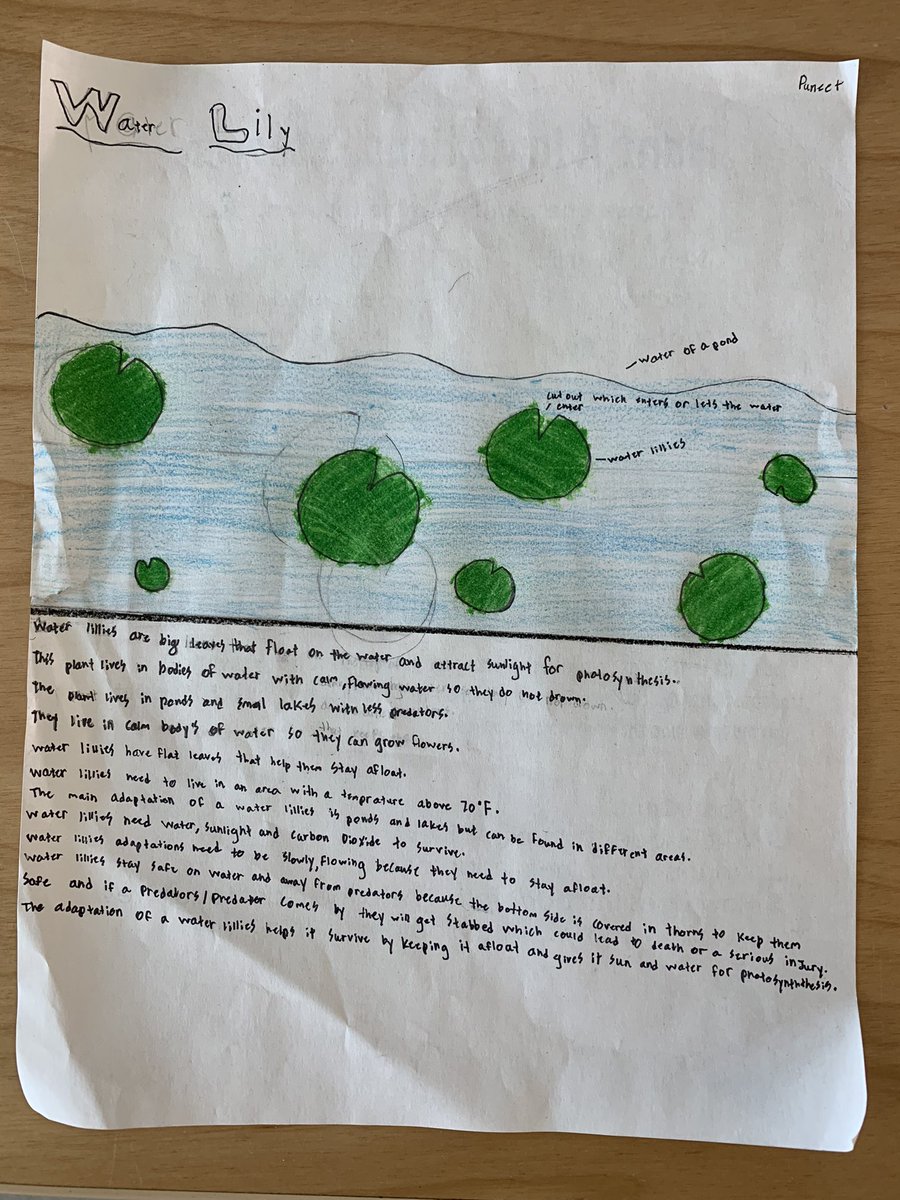 Puneet
Water Lily
water of a pond
cut out which enters or lets the water
enter
water lillies
Water lillies are big leaves that float on the water and attract sunlight for photosynthesis.
This plant lives in bodies of water with calm, flowing water so they do not drown.
The plant lives in ponds and small lakes with less predators.
They live in calm body's of water so they can grow flowers.
water lillies have flat leaves that help them stay afloat.
water lillies need to live in an area with a temprature above 70°F.
The main adaptation of a water lillies is ponds and lakes but can be found in different areas.
water lillies need water, sunlight and Carbon Dioxide to survive.
water lillies adaptations need to be slowly, flowing because they need to stay afloat.
water lillies stay safe on water and away from predators because the bottom side is covered in thorns to keep them
safe and if a Predators/Predator comes by they will get stabbed which could lead to death or a serious injury.
The adaptation of a water lillies helps it survive by keeping it afloat and gives it sun and water for photosynthesis.